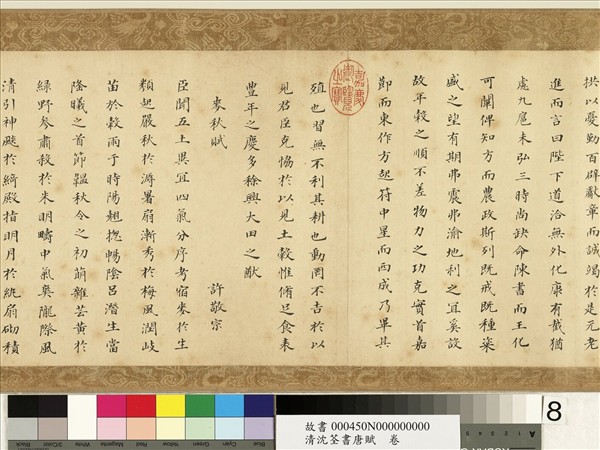 拱以憂勤百辟獻章而誠竭於是元老
進而言曰陛下道洽無外化康有截猶
處九扈未弘三時尚缺命陳書而王化
可闡俾知方而農政斯列既戒既種粢
盛之望有期弗震弗渝地利之宜奚設
故年穀之順不差物力之功克實首嘉
節而東作方起符中星而西成乃畢其
殖也習無不利其耕也動罔不吉於以
見君臣克協於以見土穀惟脩足食表
豐年之慶多稼興大田之猷
麥秋賦
許敬宗
臣聞五土異宜四氣分序考宿麥於生
類起嚴秋於溽暑扇漸秀於梅風潤歧
苗於穀雨于時陽趐摠暢陰呂潛生當
隆曦之首節韞秋令之初萌雜芸黃於
綠野參肅殺於朱明疇中氣奧隴際風
清引神飈於綺殿揩明月於紈扇砌積
嘉慶御覽之寶
Black
3/Color
White
Magenta
Red
Yellow
Green
Cyan
Blue
8
故書 000450N000000000
清沈荃書唐賦 卷